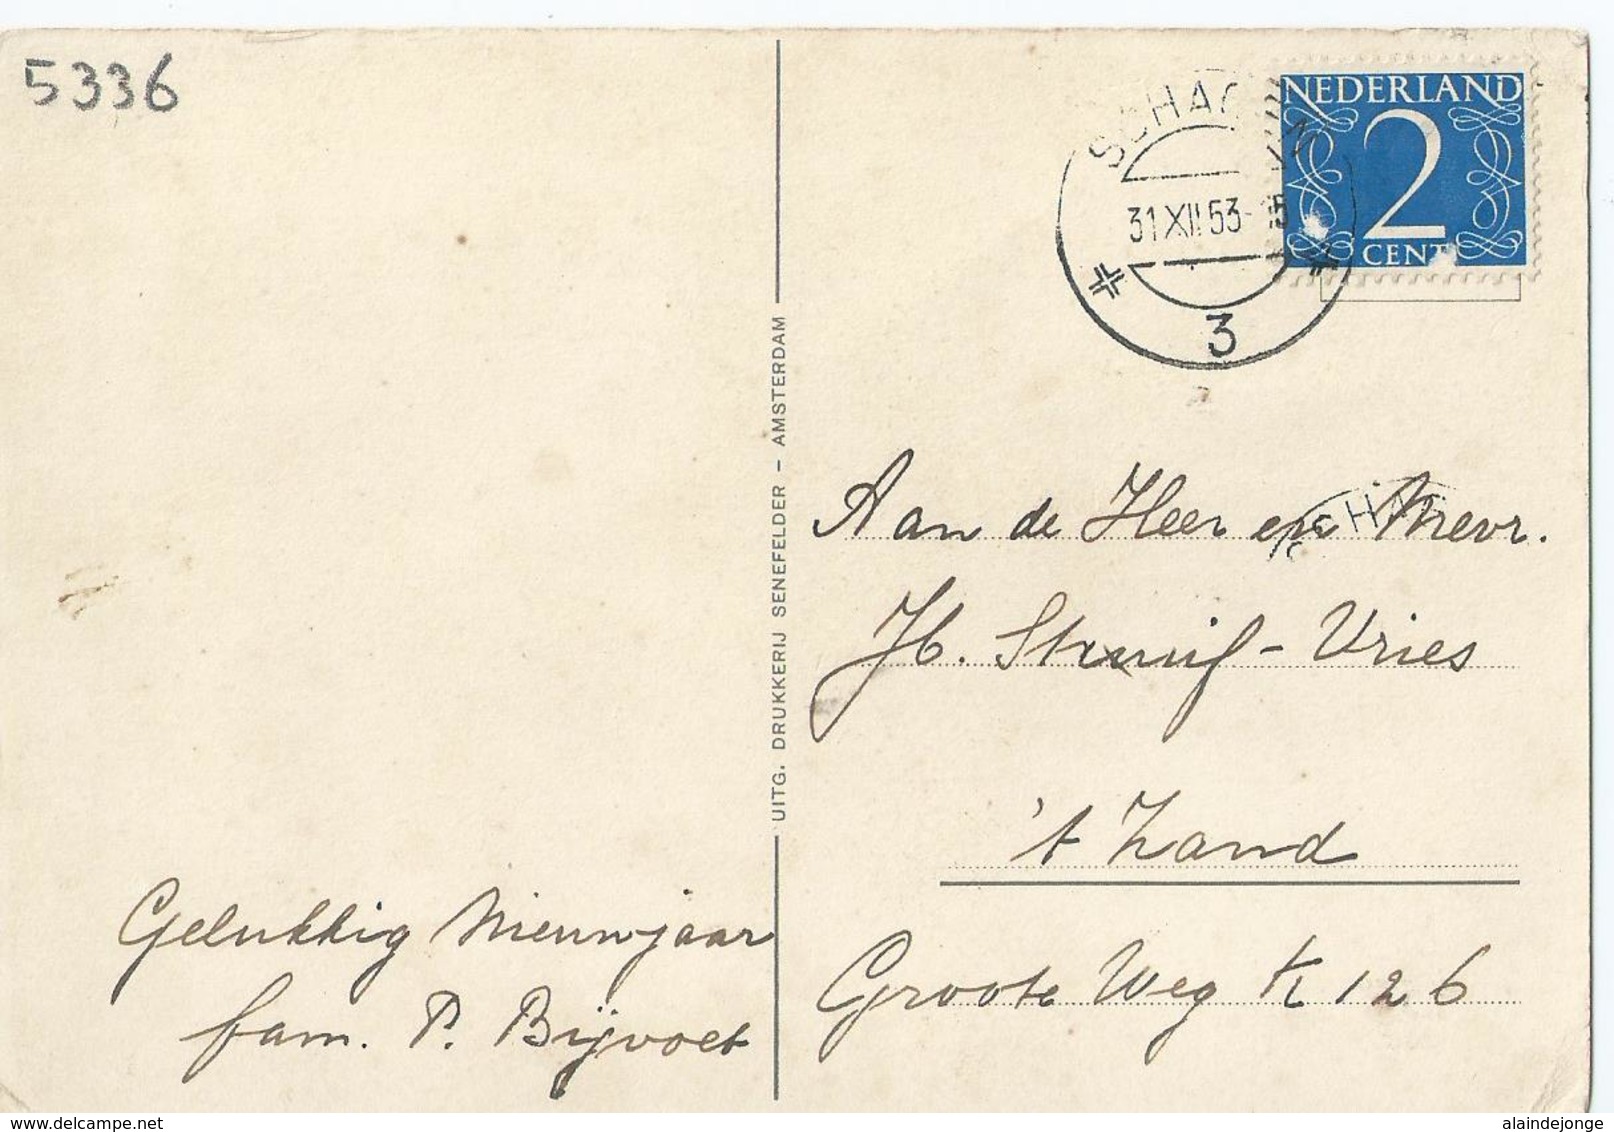 5336
Gelukkig Nieuwjaar
fam. P. Bijvoet
UITG. DRUKKERIJ SENEFELDER – AMSTERDAM
SCHAGEN
31 XII 53-15
3
NEDERLAND
2
CENT
SCHAG
Aan de Heer en Mevr.
Jb. Struif-Vries
't Zand
Groote Weg K 126
www.delcampe.net
alaindejonge